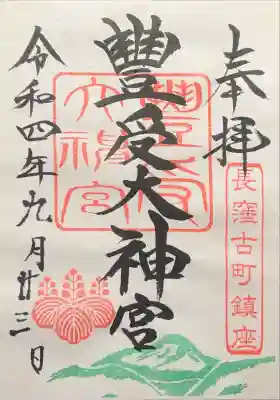 奉拝
長窪古町鎮座
豐受大神宮
豊受
大神宮
令和四年九月廿三日